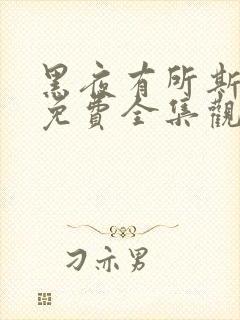 黑夜有所斯
免費全集觀
刁亦男